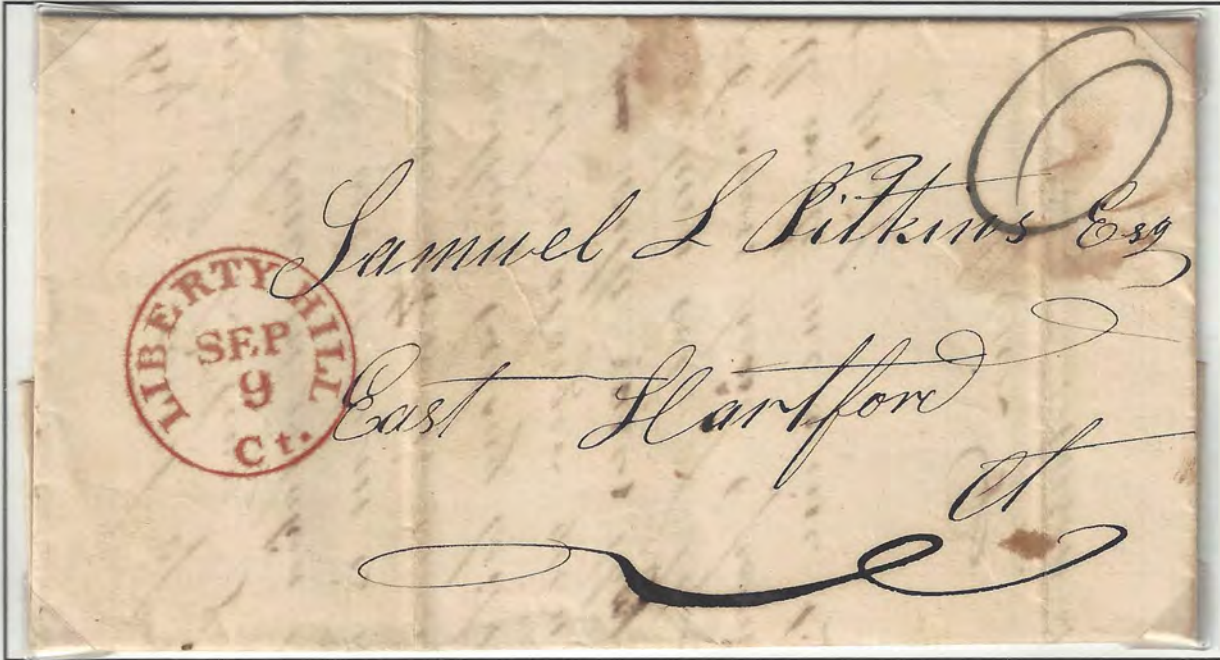 6
Samuel L Pitkins Esq
LIBERTY HILL
SEP
9
Ct.
East Hartford
Ct